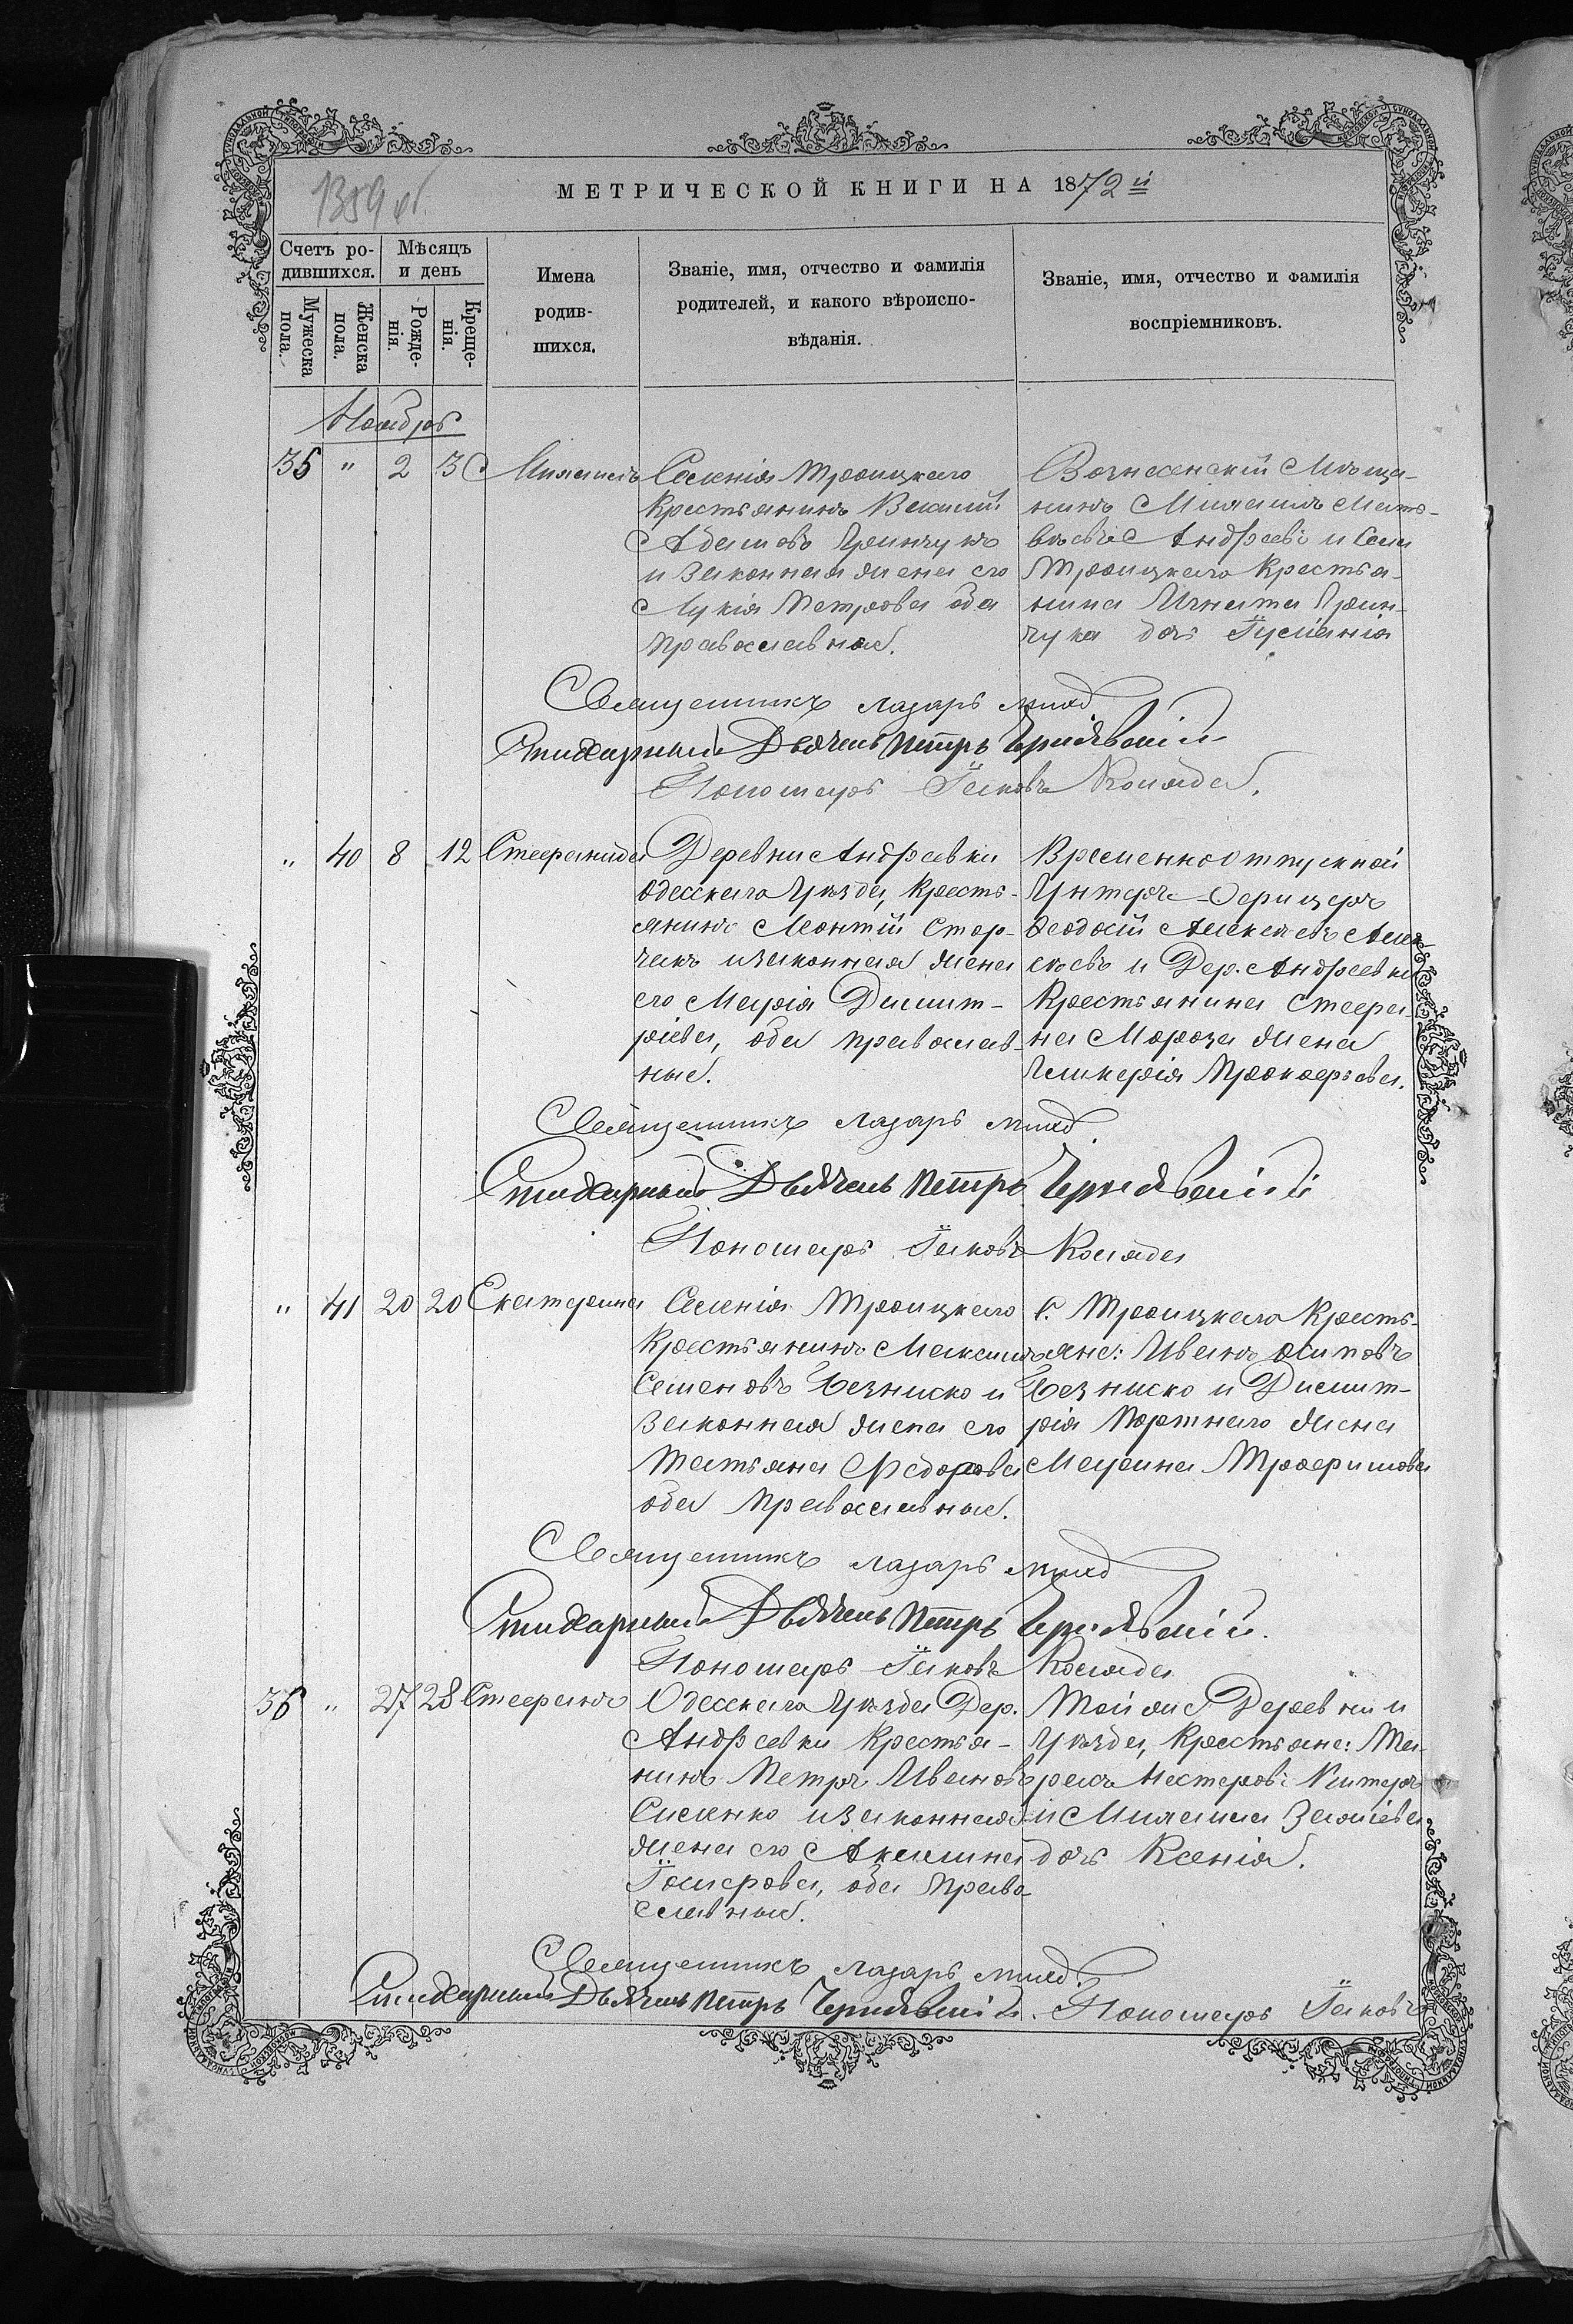 1359 об.
МЕТРИЧЕСКОЙ КНИГИ НА 1872 й
Счетъ ро-
дившихся.
Мѣсяцъ
и день
Мужеска
пола.
Женска
пола.
Рожде-
нія.
Креще-
нія.
Имена
родив-
шихся.
Званіе, имя, отчество и фамилія
родителей, и какого вѣроиспо-
вѣданія.
Званіе, имя, отчество и фамилія
воспріемниковъ.
Ноябрь
35 " 2 3 Михаилъ
Селенія Троицкаго
Крестьянинъ Василій
Адамовъ Гринчукъ
и законная жена его
Лукія Петрова оба
православные.
Вознесенскій Мѣща-
нинъ Михаилъ Матѳ-
вѣевъ Андреевъ и Села
Троицкаго Крестья-
нина Игната Грин-
чука дочь
Священникъ Лазарь
Стихарный Дьячекъ Петръ Чернявскій
Пономарь Іаковъ Коляда.
" 40 8 12 Стефанида
Деревни Андреевки
Одесскаго Уѣзда, Кресть-
янинъ Леонтій Стор-
чакъ и законная жена
его Марія Димит-
ріева, оба православ-
ные.
Временноотпускной
Унтеръ-Офицеръ
Ѳеодосій Алексѣевъ Алек-
сѣевъ и Дер. Андреевки
Крестьянина Стефа-
на Мороза жена
Гликерія Прокофьева.
Священникъ Лазарь
Стихарный Дьячекъ Петръ Чернявскій
Пономарь Іаковъ Коляда
" 41 20 20 Екатерина
Селенія Троицкаго
Крестьянинъ Максимъ
Семеновъ Безниско и
законная жена его
Татьяна Ѳедорова
оба православные.
С. Троицкаго Кресть-
яне: Иванъ Осиповъ
Безниско и Димит-
рія Портнаго жена
Марина Трофимова
Священникъ Лазарь
Стихарный Дьячекъ Петръ Чернявскій.
Пономарь Іаковъ Коляда
36 " 27 28 Стефанъ
Одесскаго Уѣзда Дер.
Андреевки Крестья-
нинъ Петръ Ивановъ
Силенко и законная
жена его Акилина
оба Право
славные.
Той же Деревни и
Уѣзда, Крестьяне: Та-
расъ Нестеровъ
и Михаила
дочь Ксенія.
Священникъ Лазарь
Стихарный Дьячекъ Петръ Чернявскій. Пономарь Іаковъ